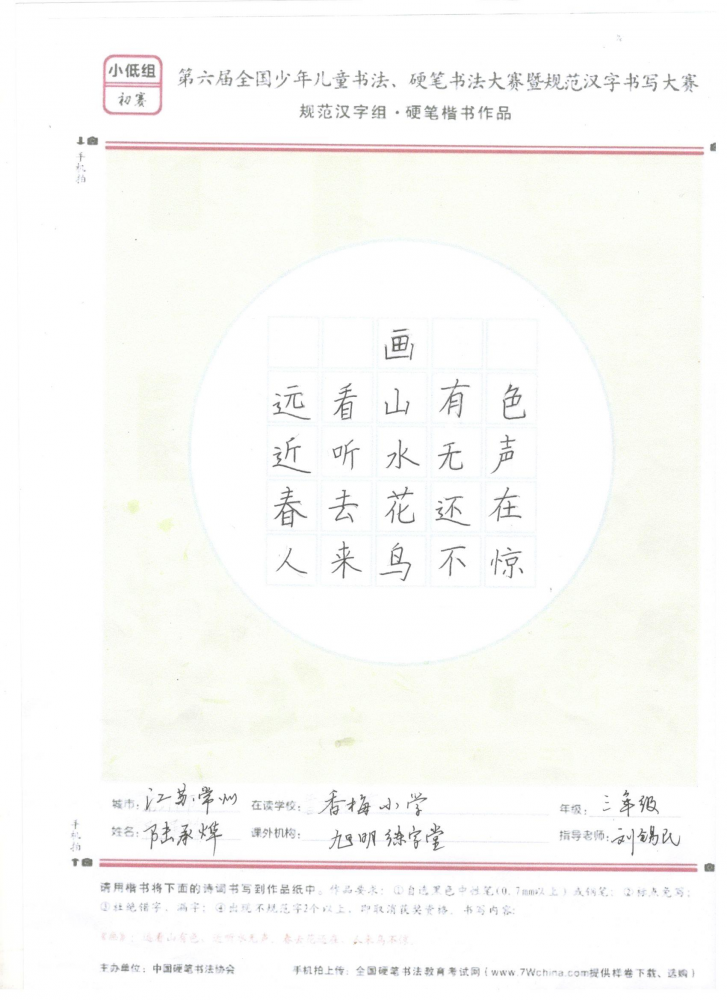 小低组
初赛
第六届全国少年儿童书法、硬笔书法大赛暨规范汉字书写大赛
规范汉字组·硬笔楷书作品
手机拍
画
远看山有色
近听水无声
春去花还在
人来鸟不惊
城市：江苏常州 在读学校：香梅小学 年级：三年级
姓名：陆承烨 课外机构：旭明练字堂 指导老师：刘锡民
手机拍
请用楷书将下面的诗词书写到作品纸中。作品要求：①自选黑色中性笔(0.7mm以上)或钢笔；②标点免写；
③杜绝错字、漏字；④出现不规范字2个以上，即取消获奖资格。书写内容：
《画》：远看山有色，近听水无声。春去花还在，人来鸟不惊。
主办单位：中国硬笔书法协会 手机拍上传：全国硬笔书法教育考试网(www.7Wchina.com提供样卷下载、选购)